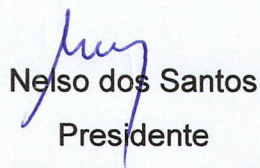 Nelso dos Santos
Presidente